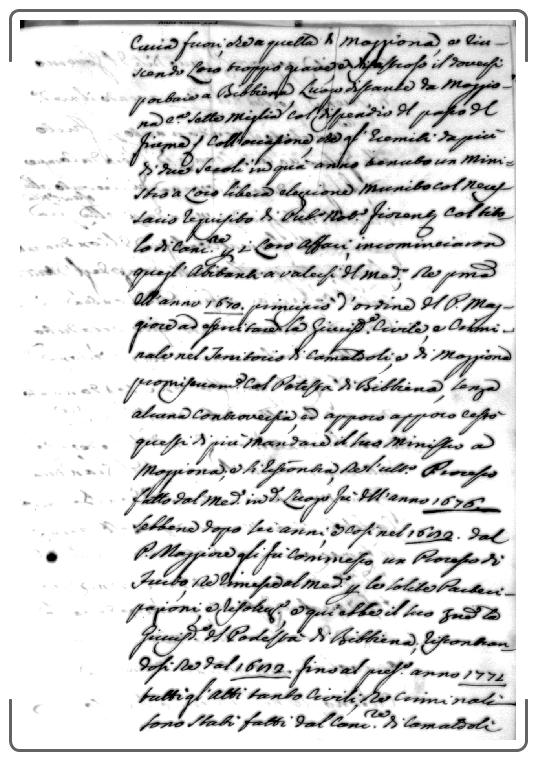 Curia fuori, che a quella di Moggiona, e riu-
scendo Loro troppo grave e disastroso il doversi
portare a Bibbiena Luogo distante da Moggio-
na c.ª sette Miglia, col dispendio del passo del
fiume, coll'occasione che gl'Eremiti da più
di due secoli in quà anno tenuto un Mini-
stro a Loro libera elezione munito col neces-
sario requisito di Pub.º Not.º Fiorent.º col tito-
lo di Canc.re p i Loro Affari, incominciaron
quegl'Abitanti a valersi del Med.º, che prima
dell'anno 1670. principiò d'ordine del P. Mag-
giore ad esercitare la Giurisd.e Civile, e Crimi-
nale nel Territorio di Camaldoli, e di Moggiona
promiscuam.e col Potestà di Bibbiena, senza
alcuna controversia, ed appoco appoco cessò
questi di più mandare il suo Ministro a
Moggiona, e si riscontra, che l'ult.º Processo
fatto dal Med.º in d.º Luogo fù dell'anno 1676.
Sebbene dopo sei anni, e così nel 1682. dal
P. Maggiore gli fù commesso un Processo di
Furto, che rimesse al Med.º p le solite Parteci-
pazioni, e
Giurisd.e del Podestà di Bibbiena, riscontran
dosi che dal 1682. fino al pres.e anno 1771
tutti gl'Atti tanto Civili, che Criminali
sono stati fatti dal Canc.re di Camaldoli